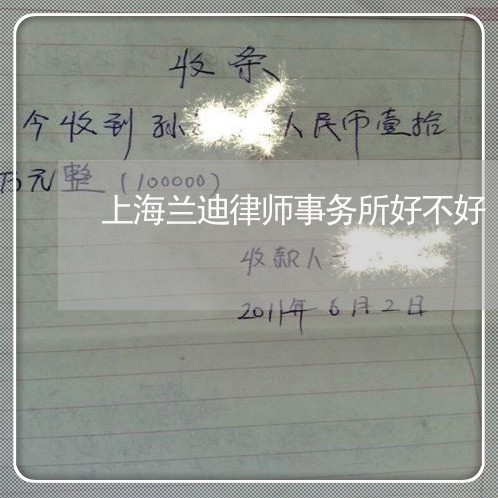 收条
今收到孙 人民币壹拾
万元整(100000)
上海兰迪律师事务所好不好
收款人
2011年6月2日